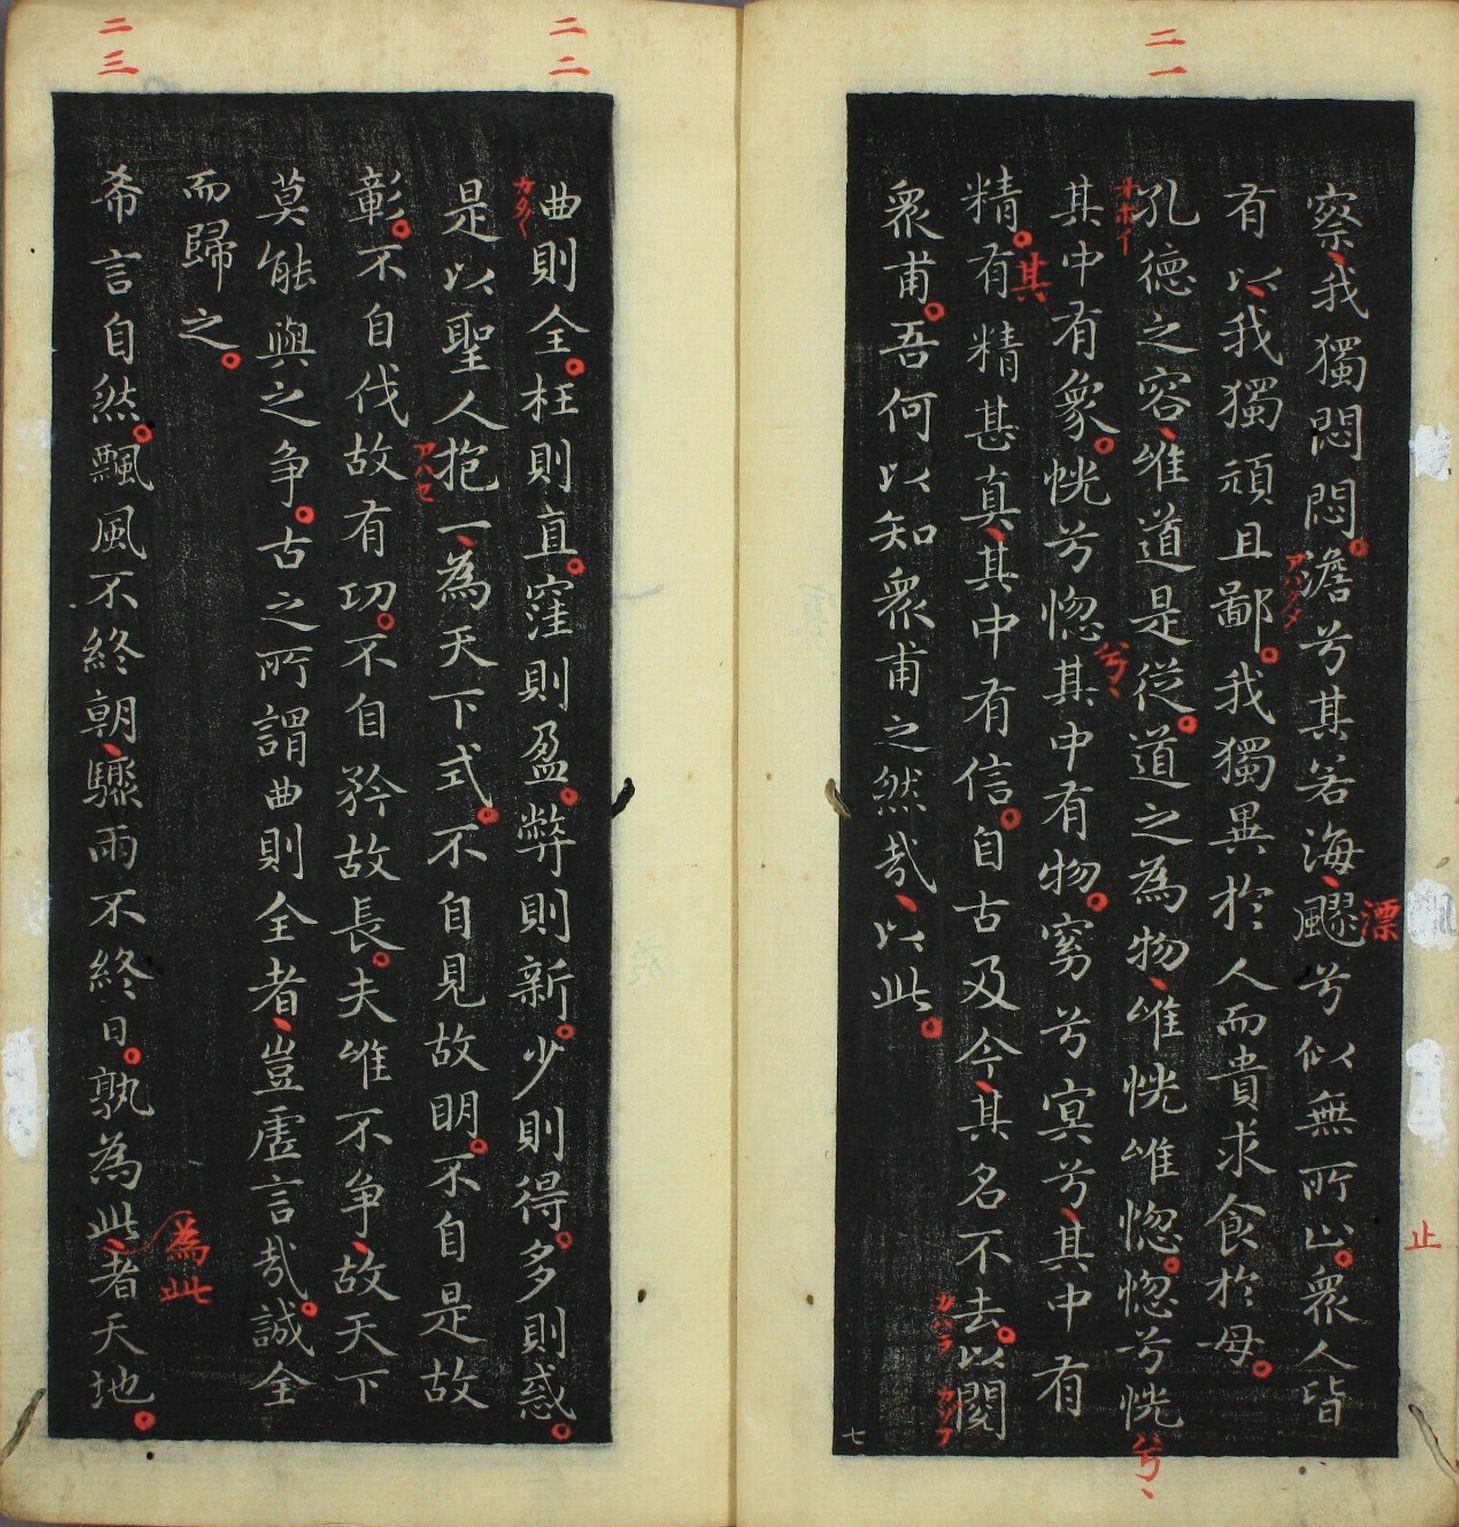 二一
察我獨悶悶澹兮其若海飂兮似無所止眾人皆
漂
止
アハクメ
有以我獨頑且鄙我獨異於人而貴求食於母
孔德之容唯道是從道之為物唯恍唯惚惚兮恍
兮
オホイ
其中有象恍兮惚其中有物窈兮冥兮其中有
兮
精有精甚真其中有信自古及今其名不去以閱
其
眾甫吾何以知眾甫之然哉以此
七
二二
曲則全枉則直窪則盈弊則新少則得多則惑
是以聖人抱一為天下式不自見故明不自是故
彰不自伐故有功不自矜故長夫唯不爭故天下
アハセ
莫能與之爭古之所謂曲則全者豈虛言哉誠全
而歸之
二三
希言自然飄風不終朝驟雨不終日孰為此者天地
為此